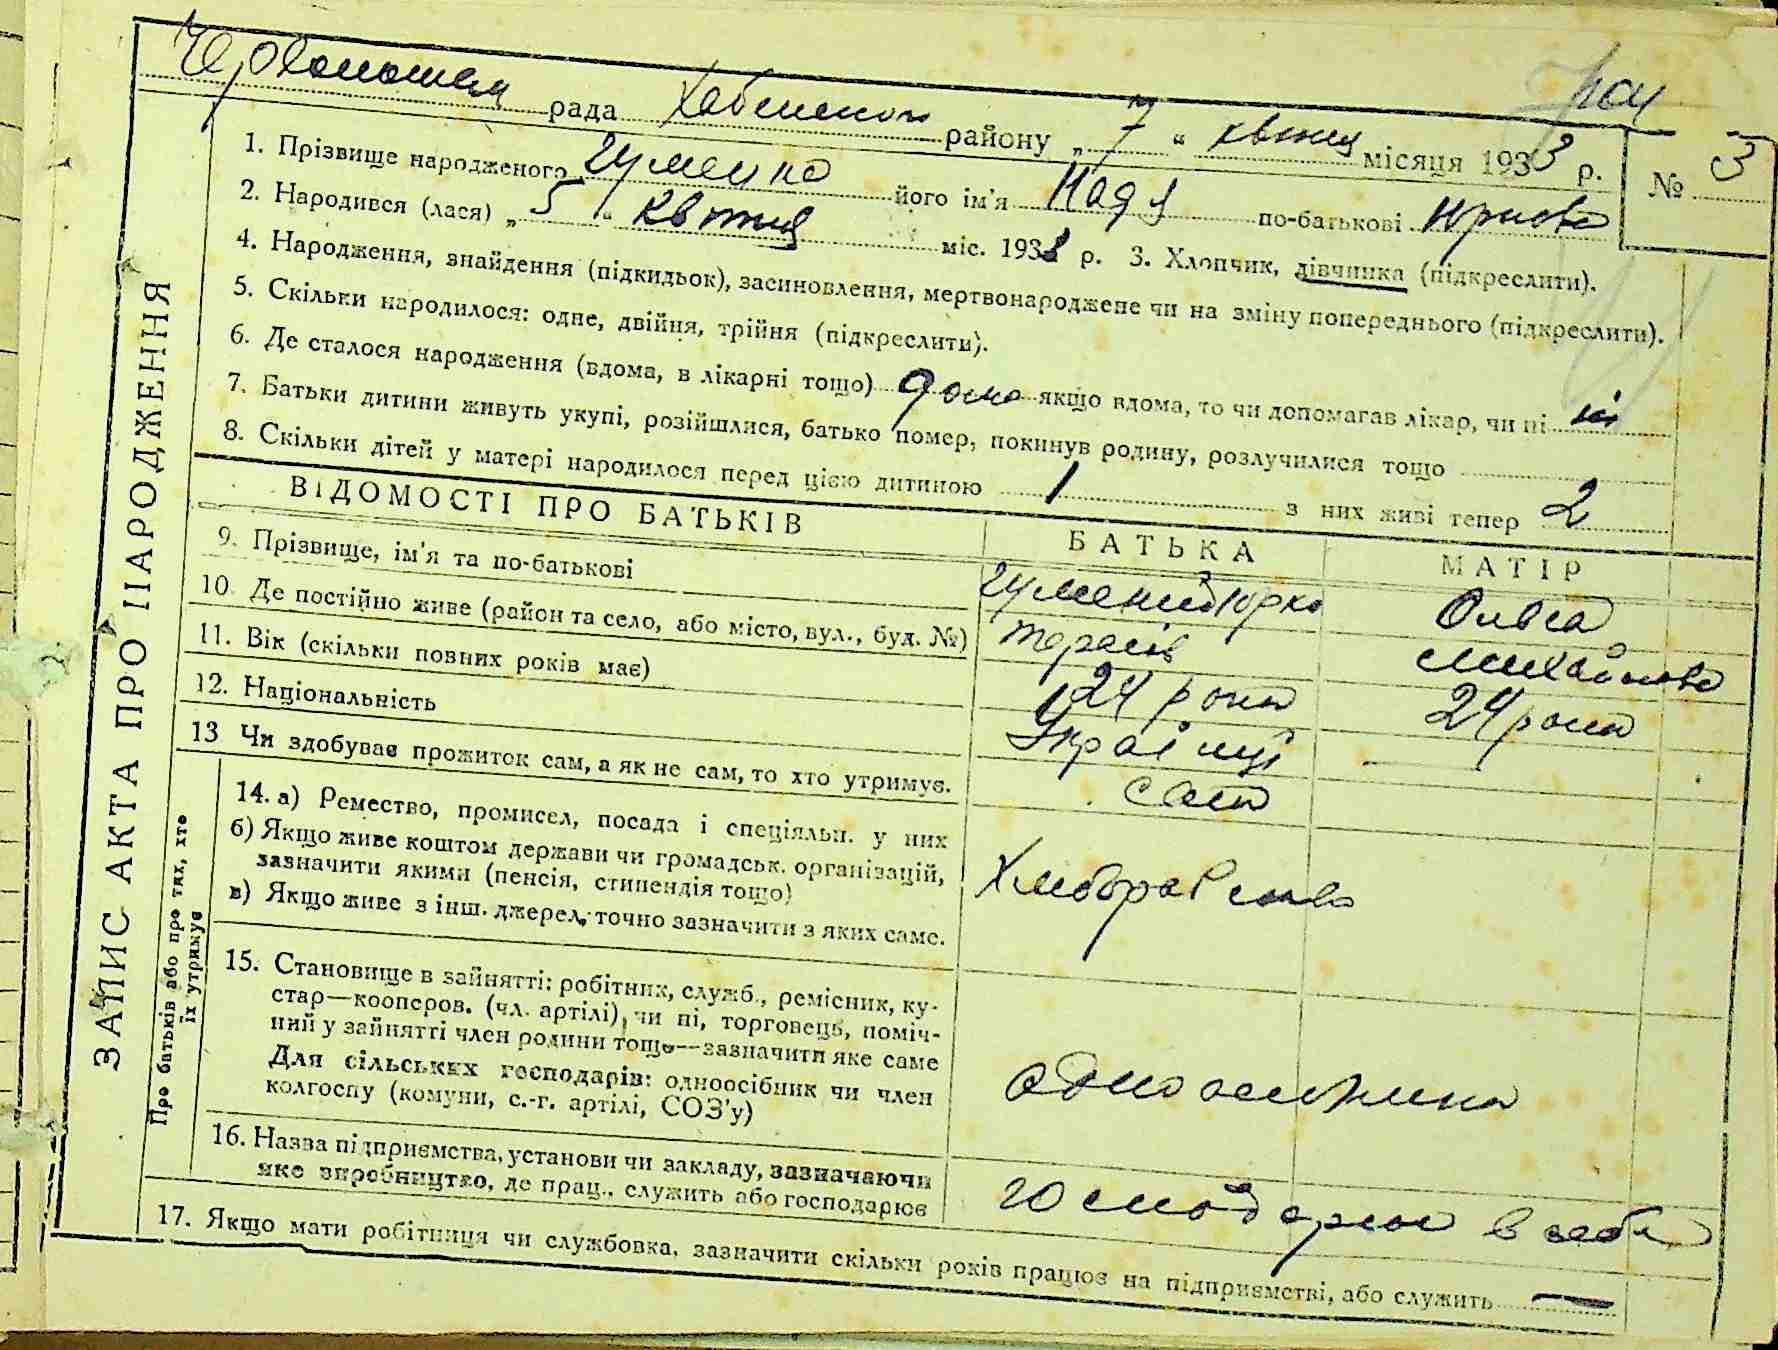 рада Хабенського району „ 7 “ квітня місяця 1933 р.
№ 3
1. Прізвище народженого Гуменна його ім'я Надя по-батькові Юркова
2. Народився (лася) „ 5 “ квітня міс. 1933 р. 3. Хлопчик, дівчинка (підкреслити).
4. Народження, знайдення (підкидьок), засиновлення, мертвонароджене чи на зміну попереднього (підкреслити).
5. Скільки народилося: одне, двійня, трійня (підкреслити).
6. Де сталося народження (вдома, в лікарні тощо) дома якщо вдома, то чи допомагав лікар, чи ні ні
7. Батьки дитини живуть укупі, розійшлися, батько помер, покинув родину, розлучилися тощо
8. Скільки дітей у матері народилося перед цією дитиною 1 з них живі тепер 2
ЗАПИС АКТА ПРО НАРОДЖЕННЯ
ВІДОМОСТІ ПРО БАТЬКІВ БАТЬКА МАТІР
9. Прізвище, ім'я та по-батькові Гуменний Юрко Ольга
10. Де постійно живе (район та село, або місто, вул., буд. №) Тарасів Михайлова
11. Вік (скільки повних років має) 24 роки 24 роки
12. Національність Українці
13 Чи здобуває прожиток сам, а як не сам, то хто утримує. сам
Про батьків або про тих, хто їх утримує
14. а) Ремество, промисел, посада і спеціяльн. у них
б) Якщо живе коштом держави чи громадськ. організацій,
зазначити якими (пенсія, стипендія тощо)
в) Якщо живе з інш. джерел, точно зазначити з яких саме.
15. Становище в зайнятті: робітник, служб., ремісник, ку-
стар—кооперов. (чл. артілі), чи ні, торговець, поміч-
ний у зайнятті член родини тощо—зазначити яке саме
Для сільських господарів: одноосібник чи член
колгоспу (комуни, с.-г. артілі, СОЗ'у)
16. Назва підприємства, установи чи закладу, зазначаючи
яке виробництво, де прац., служить або господарює
в себе
17. Якщо мати робітниця чи службовка, зазначити скільки років працює на підприємстві, або служить —